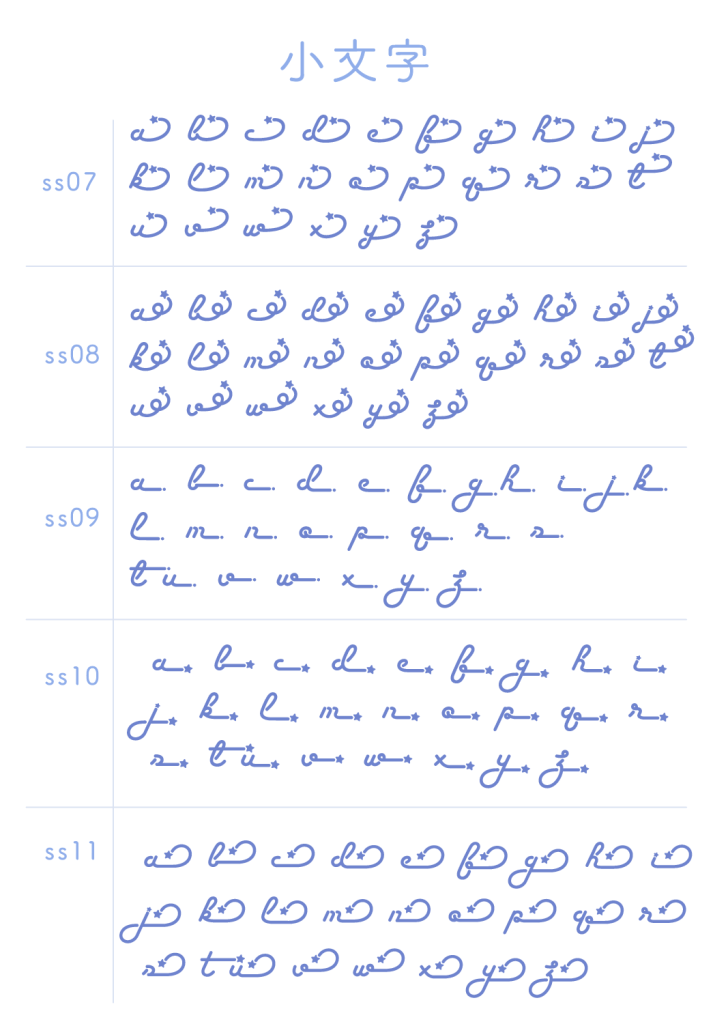 小文字
ss07
a b c d e f g h i j
k l m n o p q r s t
u v w x y z
ss08
a b c d e f g h i j
k l m n o p q r s t
u v w x y z
ss09
a. b. c. d. e. f. g. h. i. j. k.
l. m. n. o. p. q. r. s.
t. u. v. w. x. y. z.
ss10
a b c d e f g h i
j k l m n o p q r
s t u v w x y z
ss11
a b c d e f g h i
j k l m n o p q r
s t u v w x y z